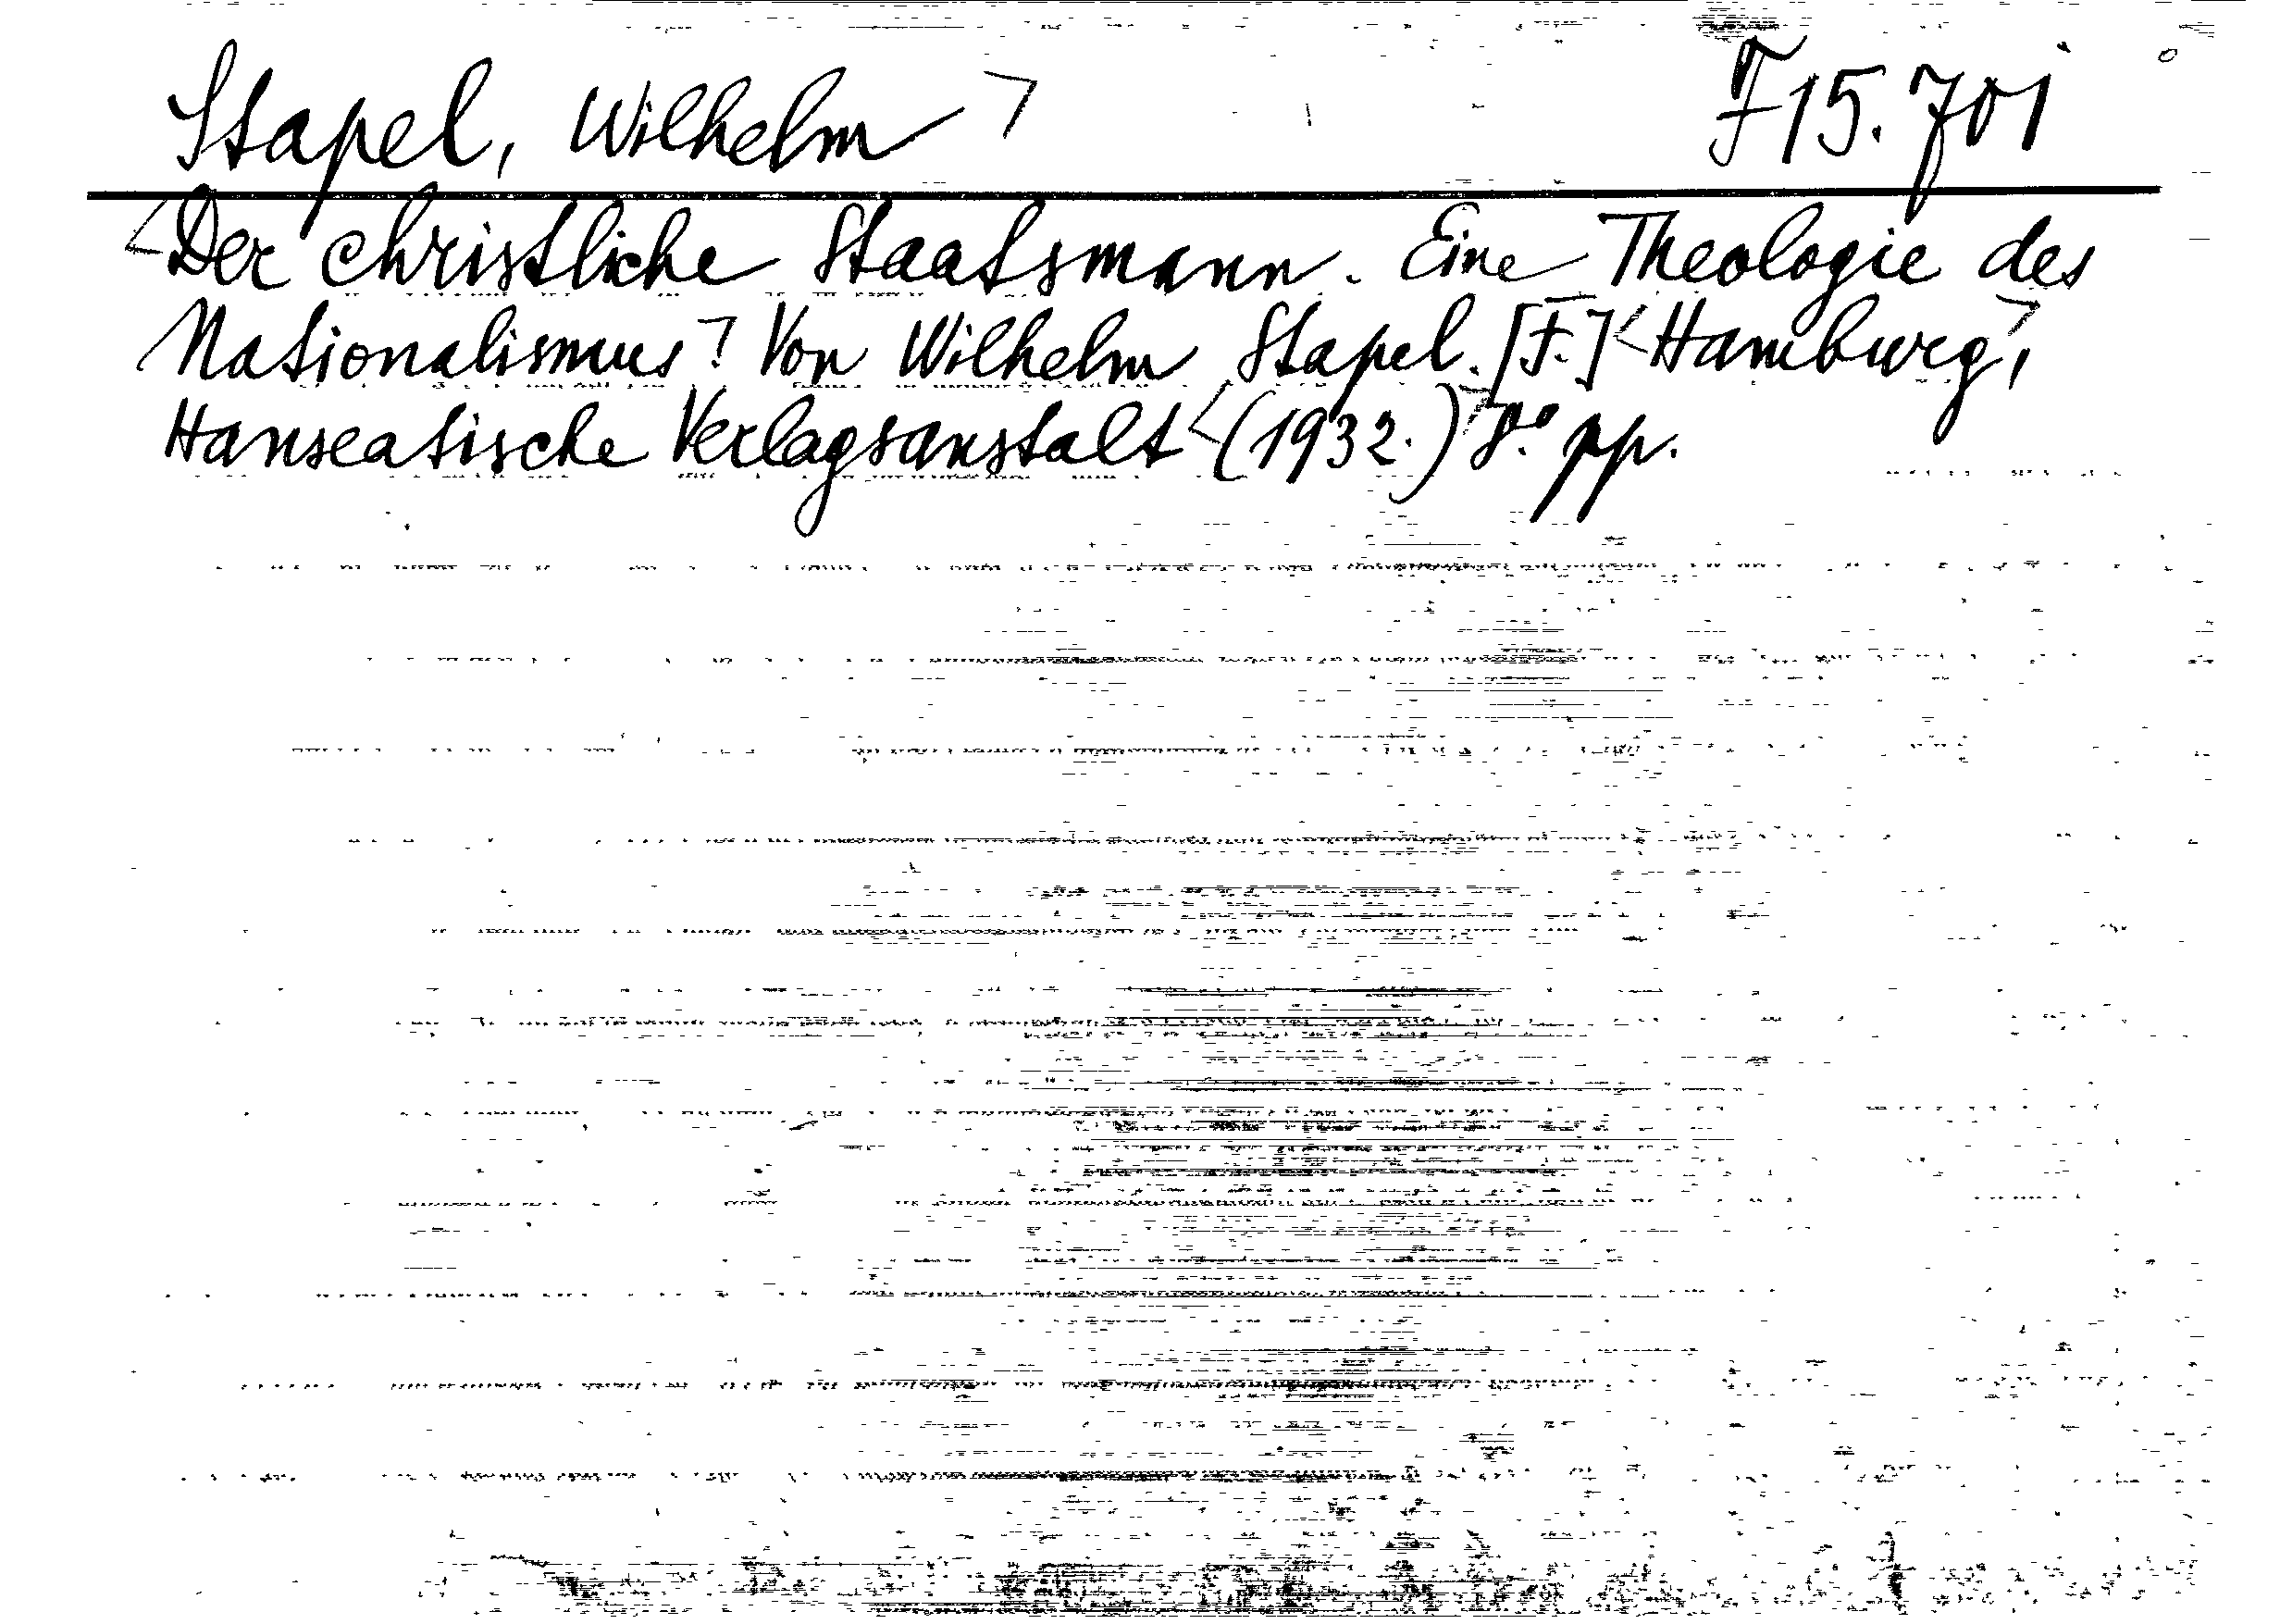 Stapel, Wilhelm F15.701
Der christliche Staatsmann. Eine Theologie des
Nationalismus. Von Wilhelm Stapel. [F.] Hamburg,
Hanseatische Verlagsanstalt (1932.) 8.° pp.